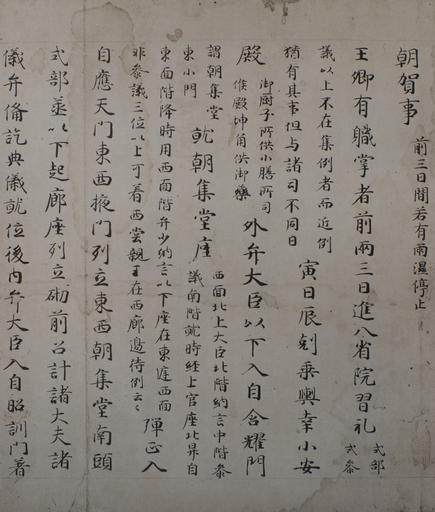 朝賀事 前三日間若有雨濕停止
王卿有軄掌者前兩三日進八省院習礼 式部式叅
議以上不在集例者而近例
猶有其事但与諸司不同日 寅日辰剋乗輿幸小安
殿 御厨子所供小膳所司候殿坤角供御藥 外弁大臣以下入自含耀門
謂朝集堂東小門 就朝集堂座 西面北上大臣北階納言中階叅議南階就時経上官座北昇自
東面階降時用西面階弁少納言以下座在東遑西面
非叅議三位以上可着西堂親王在西廊邊待例云々 弾正入
自應天門東西掖門列立東西朝集堂南頭
式部𦬇以下起廊座列立砌前召計諸大夫諸
儀弁俻訖典儀就位後内弁大臣入自昭訓門著